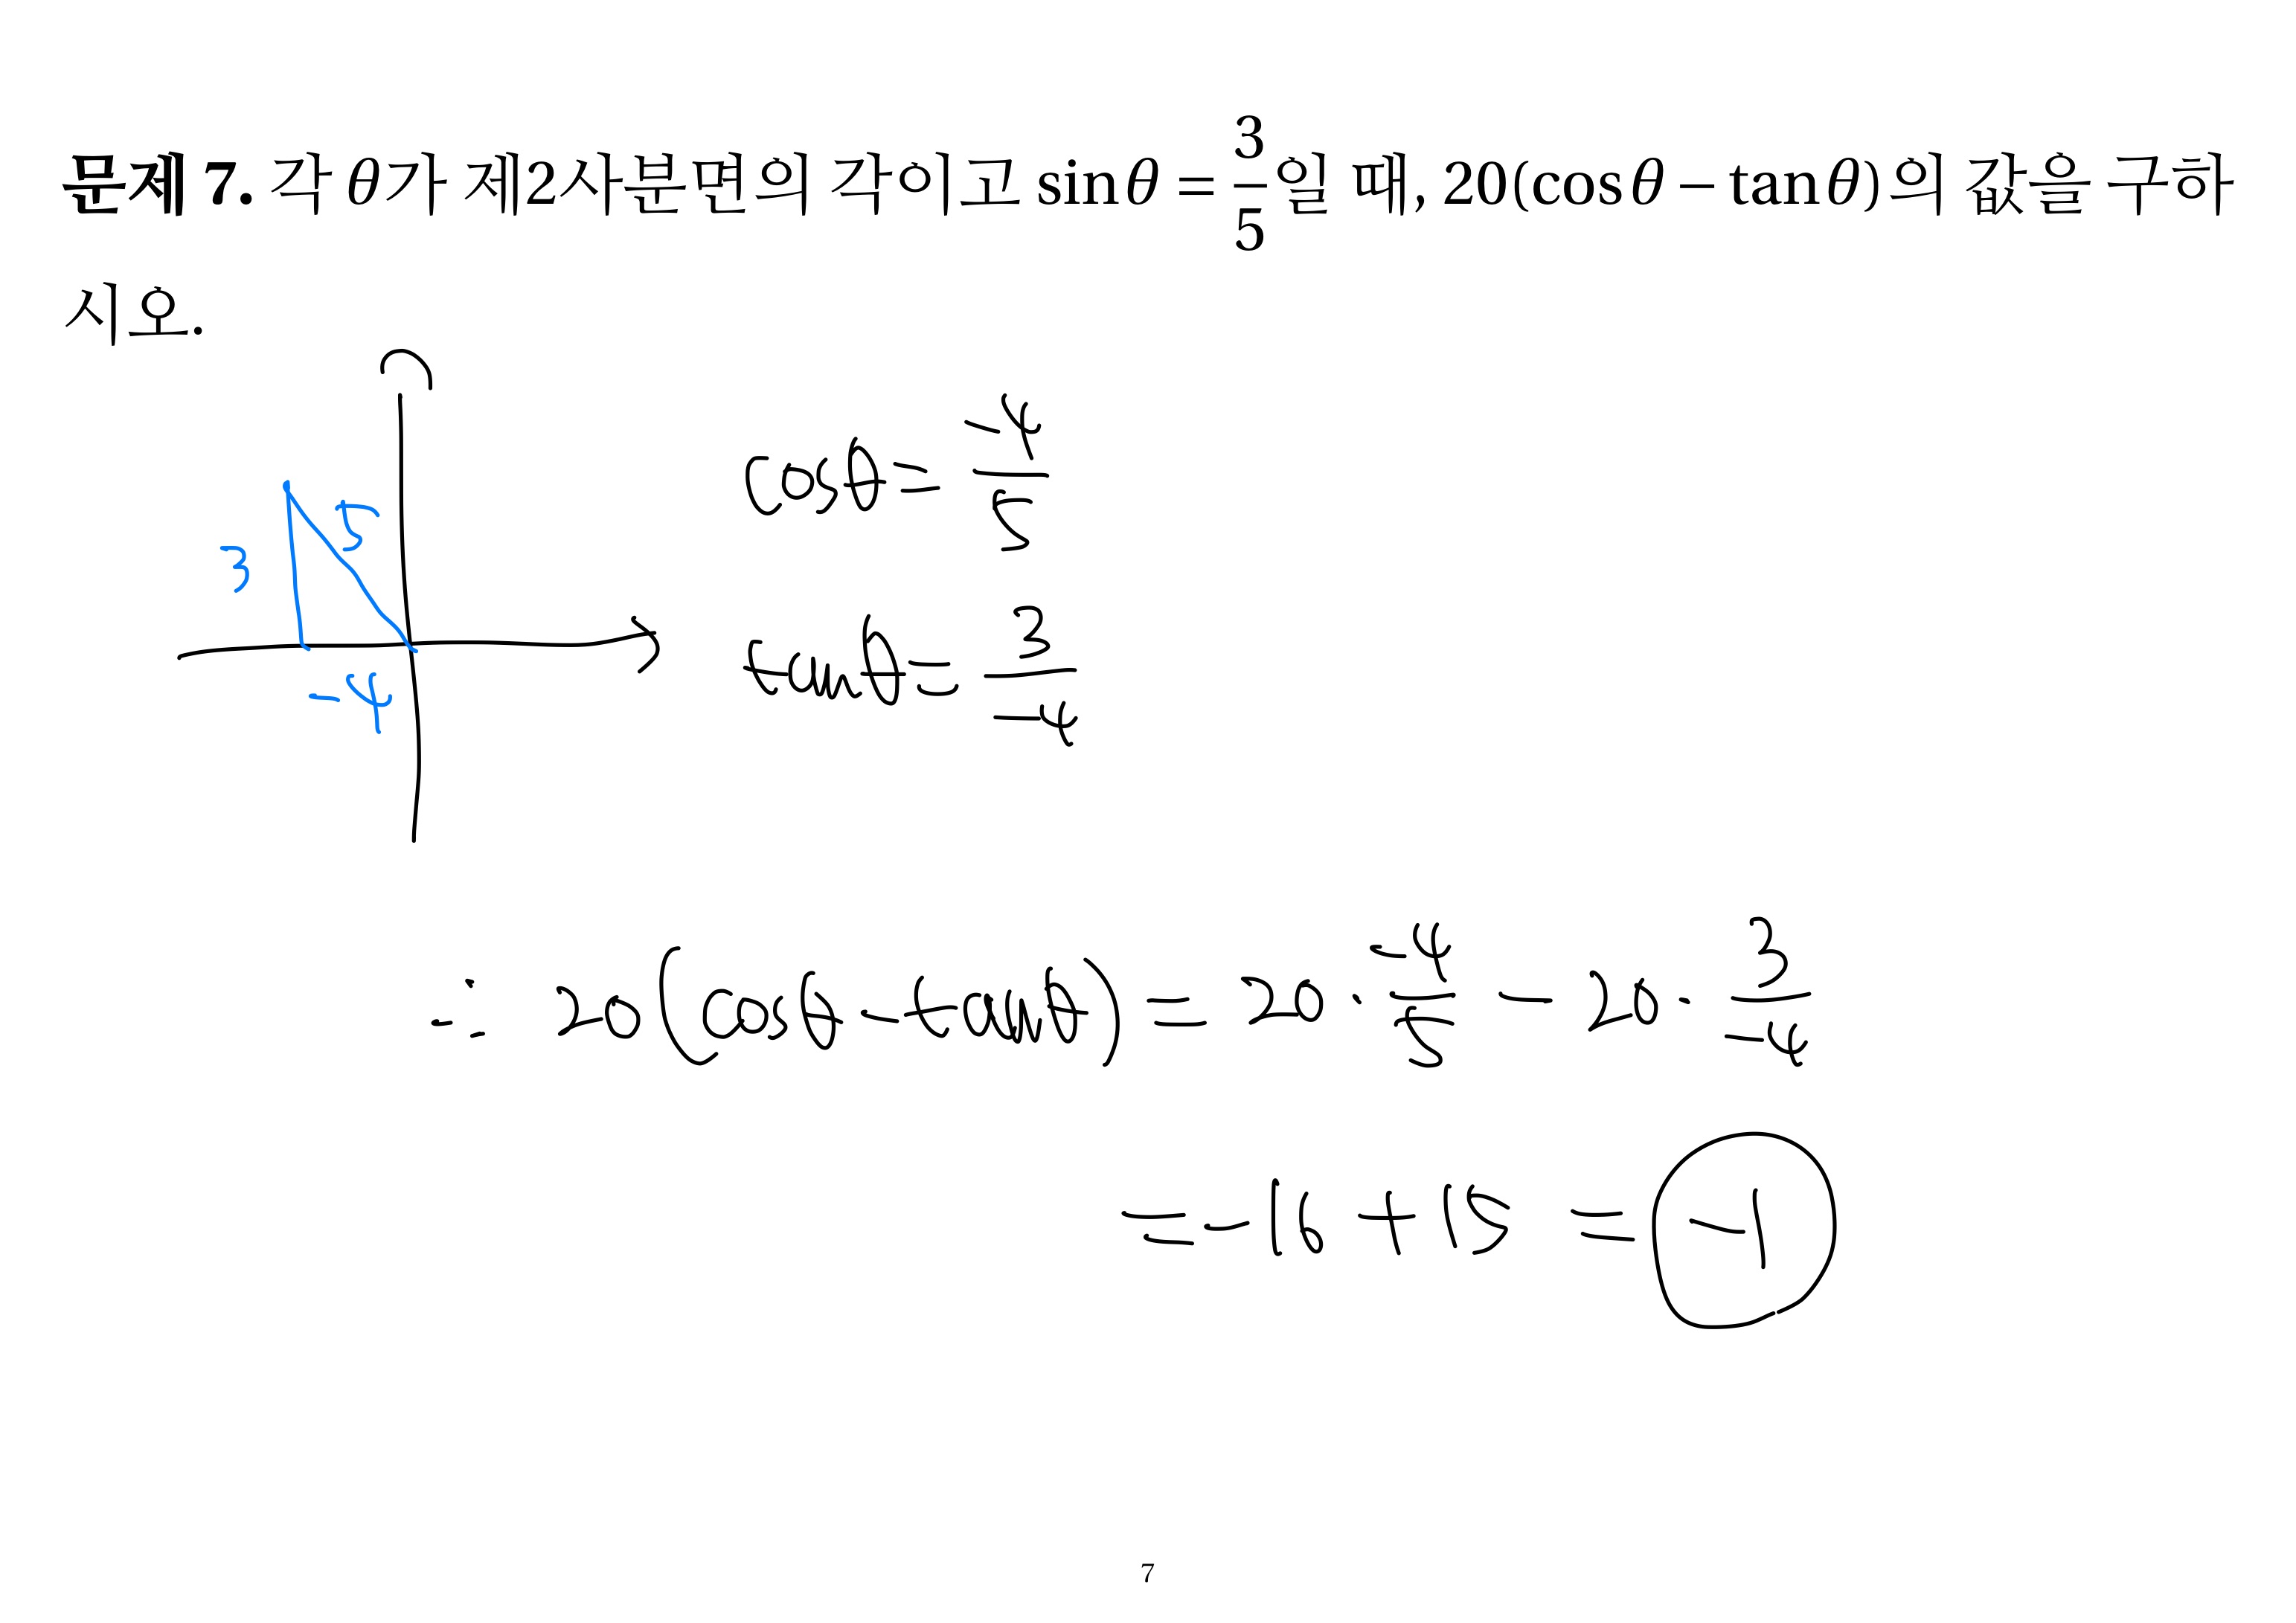 문제 7. 각 θ가 제2사분면의 각이고 sin θ = 3/5일 때, 20(cos θ − tan θ)의 값을 구하
시오.
3
5
-4
cosθ = -4/5
tanθ = 3/-4
∴ 20(cosθ - tanθ) = 20 · -4/5 - 20 · 3/-4
= -16 + 15 = -1
7